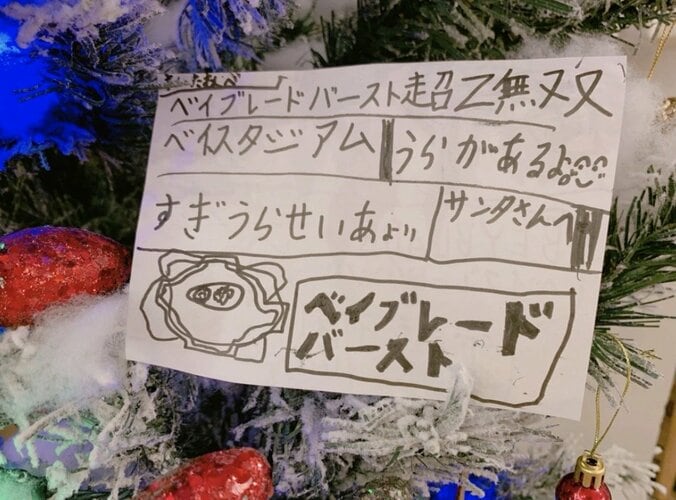 ベイブレードバースト超Z無双
ベイスタジアム
うらがあるよ
すぎうらせいあより
サンタさんへ
ベイブレード
バースト